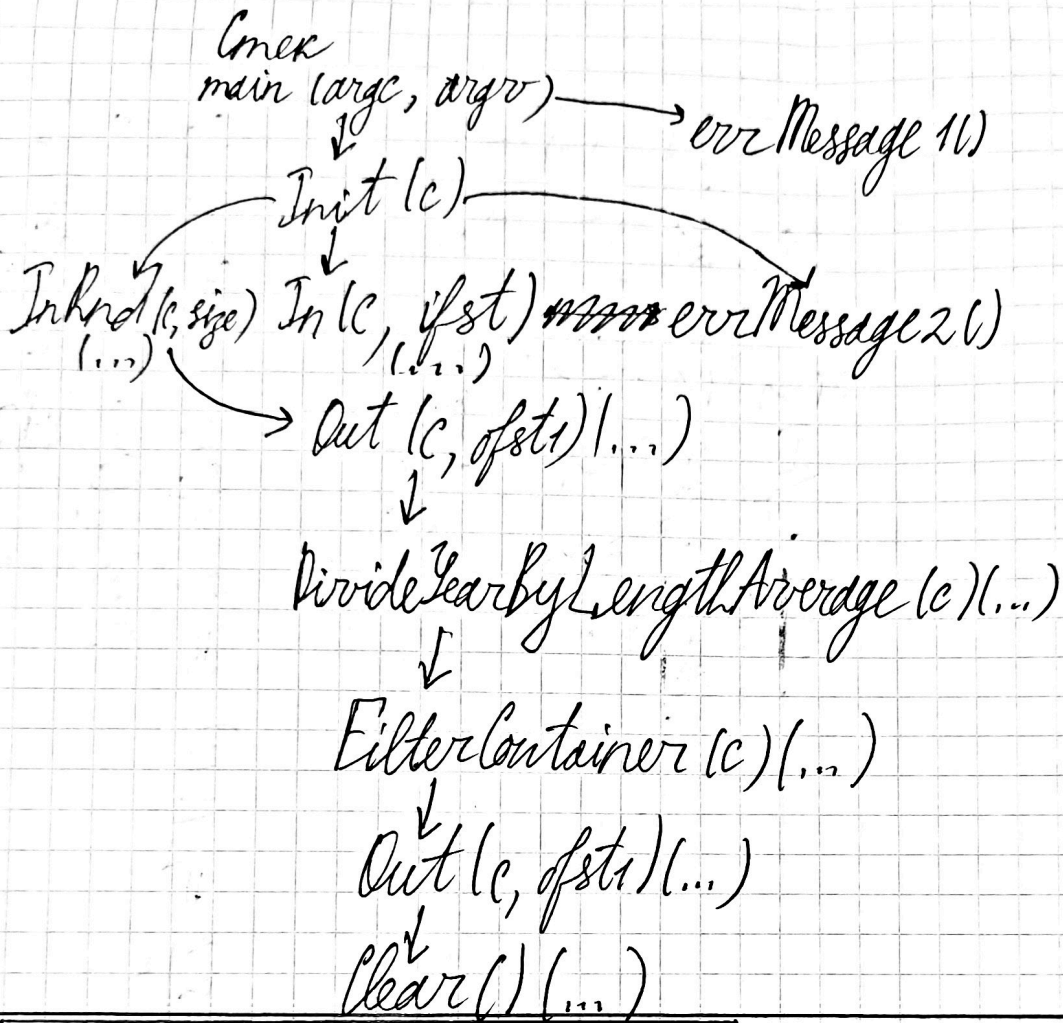 Стек
main (argc, argv)
errMessage1()
Init (c)
InRnd (c, size) In (c, ifst) errMessage2()
(...) (...)
Out (c, ofst1)(...)
DivideYearByLengthAverage (c)(...)
FilterContainer (c)(...)
Out (c, ofst1)(...)
Clear () (...)